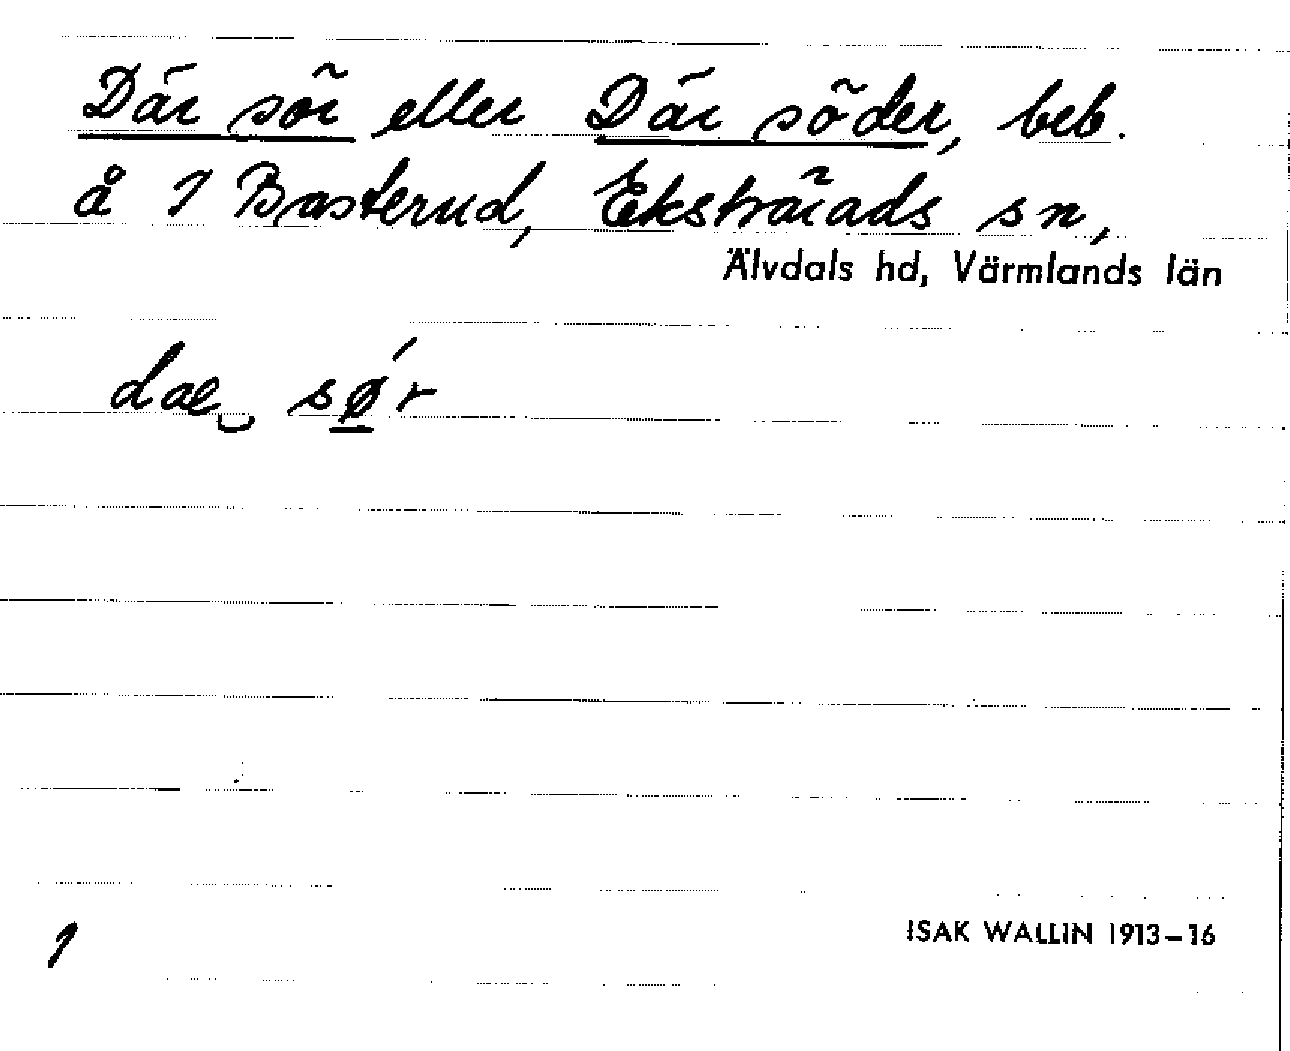 Där sör eller Där söder, beb.
å 1 Basterud, Ekshärads sn,
Älvdals hd, Värmlands län
dae‿ sǿ̱r
1
ISAK WALLIN 1913–16